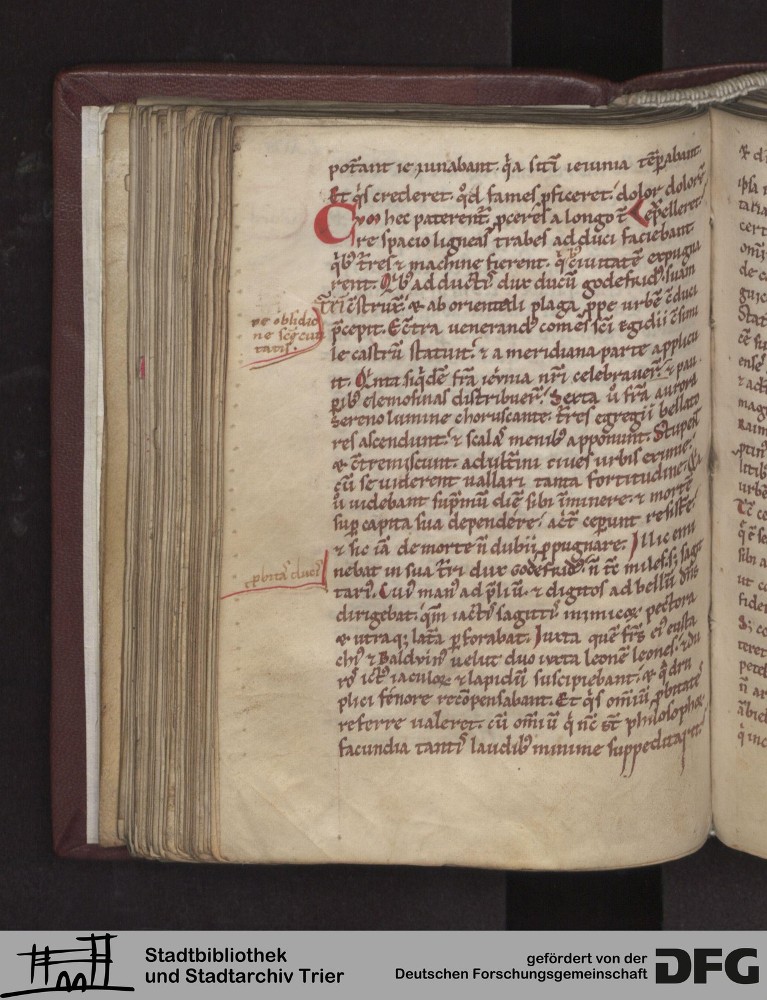 potant ieiunabant. q̇a siti ieiunia tēꝑabant.
Et q̇s crederet. q̇d fames ꝓficeret. dolor dolorē
Cvm hec paterent̄. ꝓceres a longo t̄ expelleret
re spacio ligneas trabes adduci faciebant
q̇bꝰ t̄res ⁊ machine fierent. q̇ ciuitatē expugna
rent. Q̇bꝰ adductis dux ducū godefridꝰ suam
t̄rī c̄struxit. & ab orientali plaga ꝓpe urbē c̄duci
p̄cepit. Ec̄tra venerandꝰ comes sc̄i Egidii c̄simi
le castrū statuit. & a meridiana parte applicu
it. Q̇nta siq̇dē fr̄a ieiunia nr̄i celebrauer̄. & pau
ꝑibꝰ elemosinas distribuer̄. Sexta ū fr̄a aurora
sereno lumine choruscante. t̄res egregii bellato
res ascendunt. & scalas menibꝰ apponunt. Stupent
& c̄tremiscunt. adult̄ini ciues urbis eximie.
cū se viderent uallari tanta fortitudine. Q̇a
ū uidebant sup̄mū diē sibi īminere. & mortē
suꝑ capita sua dependere. ac̄t ceperunt resist̄e.
& sic iā de morte n̄ dubii ꝓpugnare. Illic emi
nebat in sua t̄ri dux Godefridꝰ. n̄ t̄c miles. sꝫ sagit
tariꝰ. Cuiꝰ manꝰ ad p̄liū. & digitos ad bellū dn̄s
dirigebat. q̄m iactis sagittis inimicoꝝ pectora
& utraqꝫ lat̄a ꝑforabat. Iuxta quē fr̄s eiꝰ eusta
chiꝰ & Baldvinꝰ uelut duo iuxta leonē leones. & du
ros ictꝰ iaculoꝝ & lapidū suscipiebant. & q̇dru
plici fenore recōpensabant. Et q̇s om̄iū ꝓbitatē
referre ualeret. cū om̄iū q̇ nc̄ st̄ philosophoꝝ
facundia tantis laudibꝰ minime suppeditaret.
De obsidio
ne sc̄e ciui
tatis.
ꝓbitas ducis
Stadtbibliothek
und Stadtarchiv Trier
gefördert von der
Deutschen Forschungsgemeinschaft
DFG